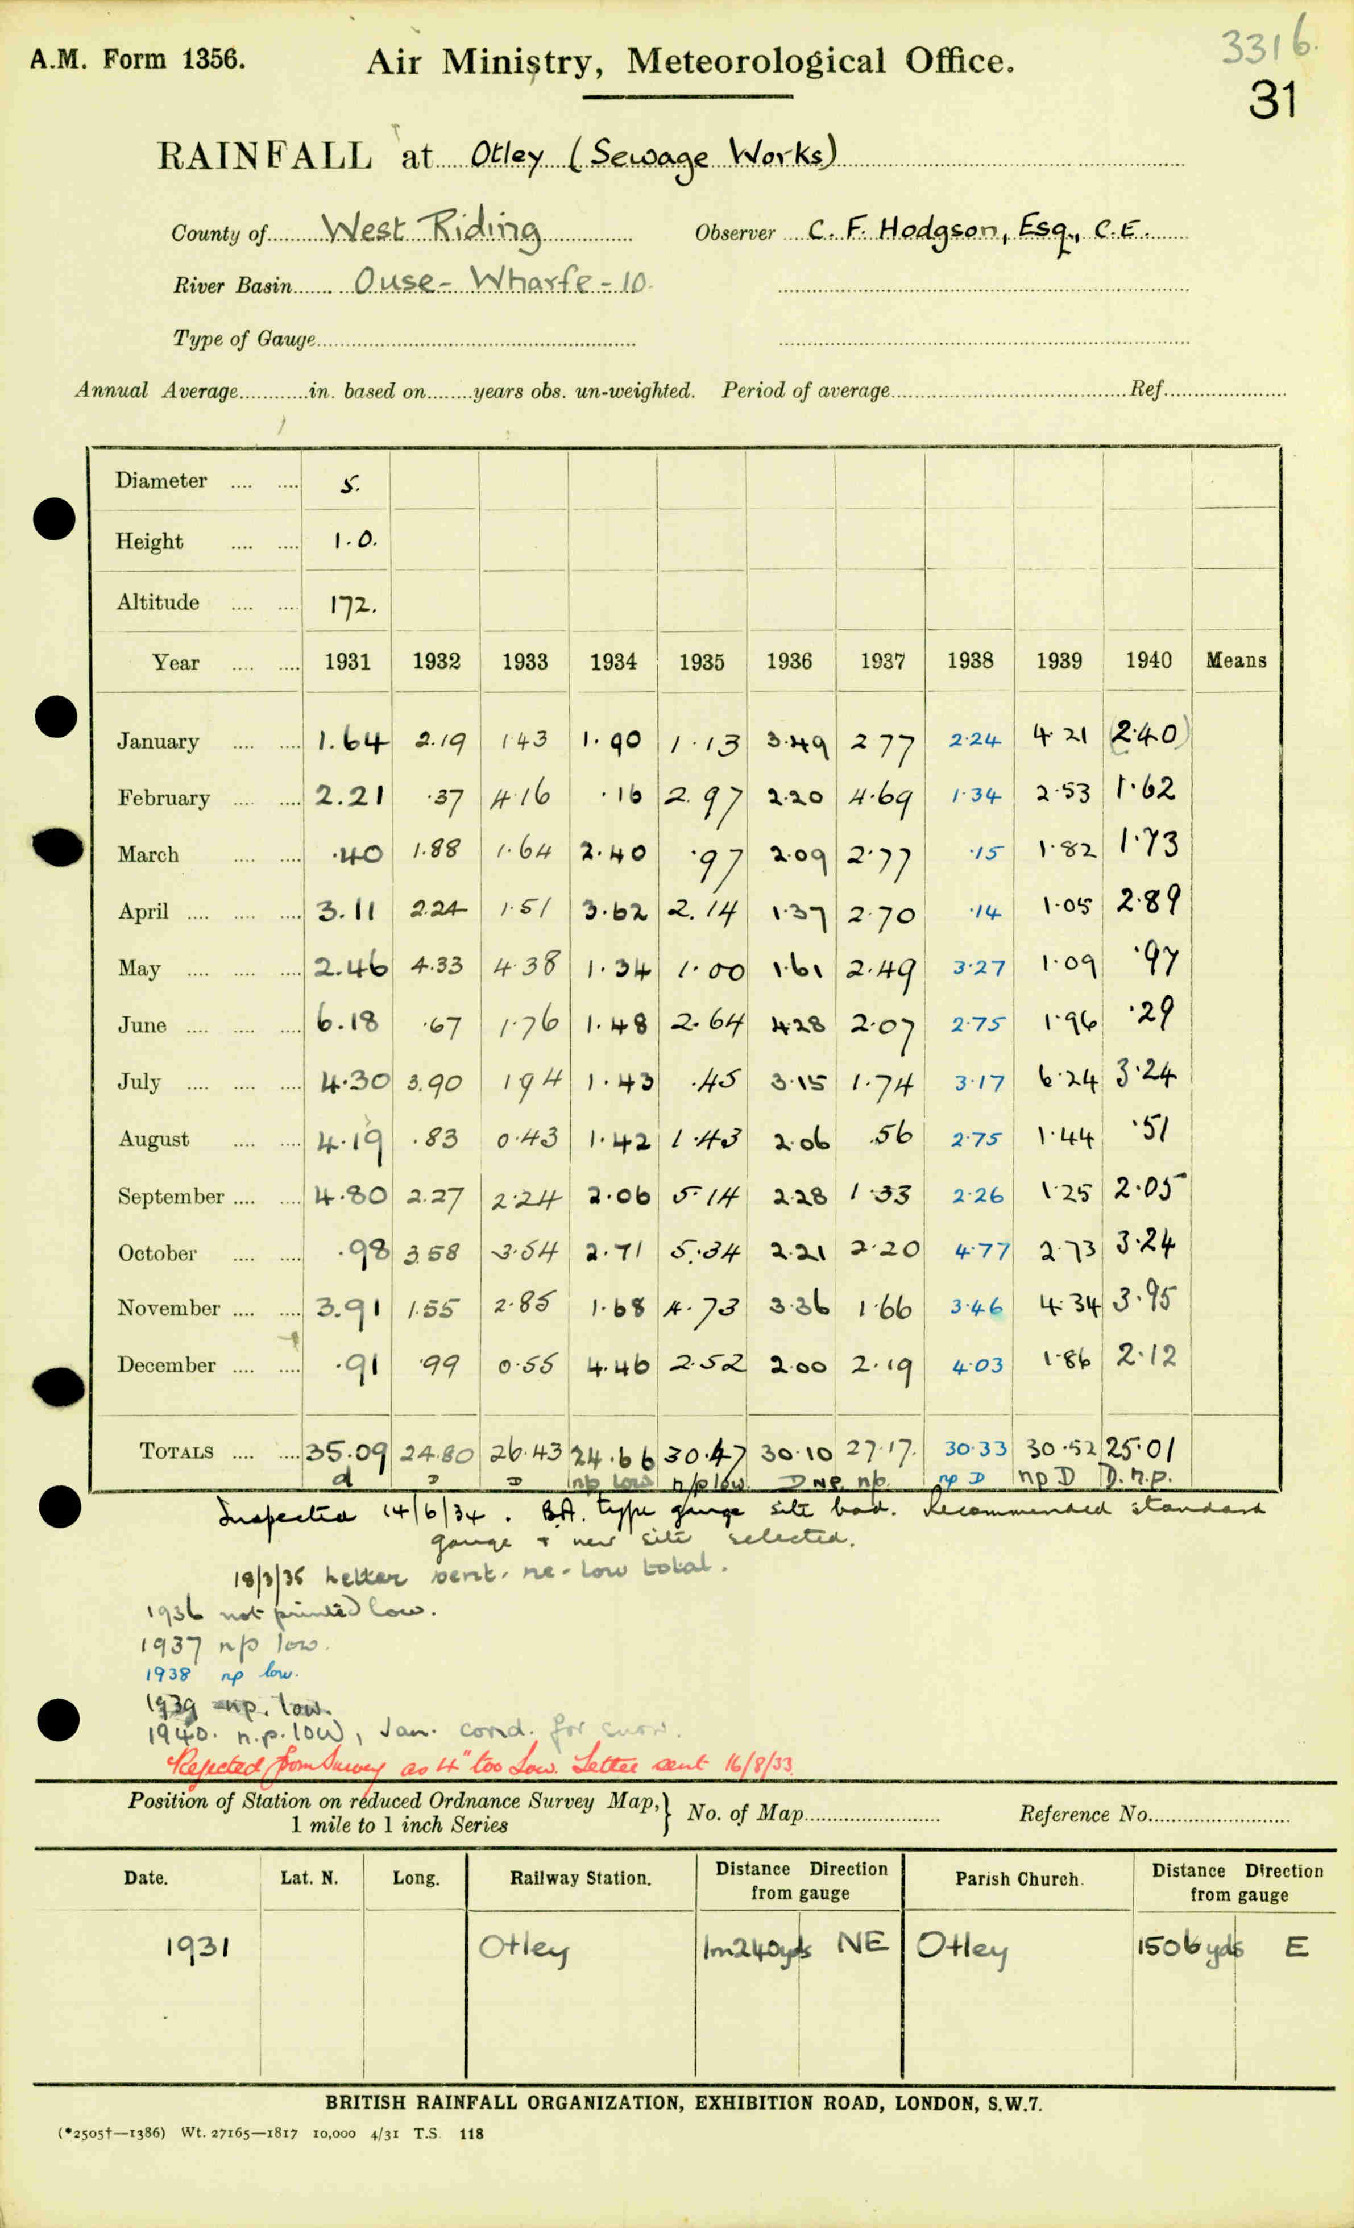 3316.
A.M. Form 1356. Air Ministry, Meteorological Office.
31
RAINFALL at Otley (Sewage Works)
County of West Riding Observer C. F. Hodgson, Esq., C.E.
River Basin Ouse - Wharfe - 10.
Type of Gauge
Annual Average in. based on years obs. un-weighted. Period of average Ref.
Diameter 5.
Height 1.0.
Altitude 172.
Year 1931 1932 1933 1934 1935 1936 1937 1938 1939 1940 Means
January 1.64 2.19 1.43 1.90 1.13 3.49 2.77 2.24 4.21 (2.40)
February 2.21 .37 4.16 .16 2.97 2.20 4.69 1.34 2.53 1.62
March .40 1.88 1.64 2.40 .97 2.09 2.77 .15 1.82 1.73
April 3.11 2.24 1.51 3.62 2.14 1.37 2.70 .14 1.05 2.89
May 2.46 4.33 4.38 1.34 1.00 1.61 2.49 3.27 1.09 .97
June 6.18 .67 1.76 1.48 2.64 4.28 2.07 2.75 1.96 .29
July 4.30 3.90 1.94 1.43 .45 3.15 1.74 3.17 6.24 3.24
August 4.19 .83 0.43 1.42 1.43 2.06 .56 2.75 1.44 .51
September 4.80 2.27 2.24 2.06 5.14 2.28 1.33 2.26 1.25 2.05
October .98 3.58 3.54 2.71 5.34 2.21 2.20 4.77 2.73 3.24
November 3.91 1.55 2.85 1.68 4.73 3.36 1.66 3.46 4.34 3.95
December .91 .99 0.55 4.46 2.52 2.00 2.19 4.03 1.86 2.12
TOTALS 35.09 24.80 26.43 24.66 30.47 30.10 27.17. 30.33 30.52 25.01
d D D np low n/p low. D NP. np. np D np D D.n.p.
Inspected 14/6/34. B.A. type gauge site bad. Recommended standard
gauge + new site selected.
18/3/35 Letter sent. re-low total.
1936 not printed low.
1937 n/p low.
1938 np low.
1939 np. low.
1940. n.p. low, Jan. cond. for snow.
Rejected from Survey as 4" too Low. Letter sent 16/8/33.
Position of Station on reduced Ordnance Survey Map, } No. of Map Reference No.
1 mile to 1 inch Series
Date. Lat. N. Long. Railway Station. Distance Direction from gauge Parish Church. Distance Direction from gauge
1931 Otley 1m240yds NE Otley 1506yds E
BRITISH RAINFALL ORGANIZATION, EXHIBITION ROAD, LONDON, S.W.7.
(*2505†—1386) Wt. 27165—1817 10,000 4/31 T.S. 118